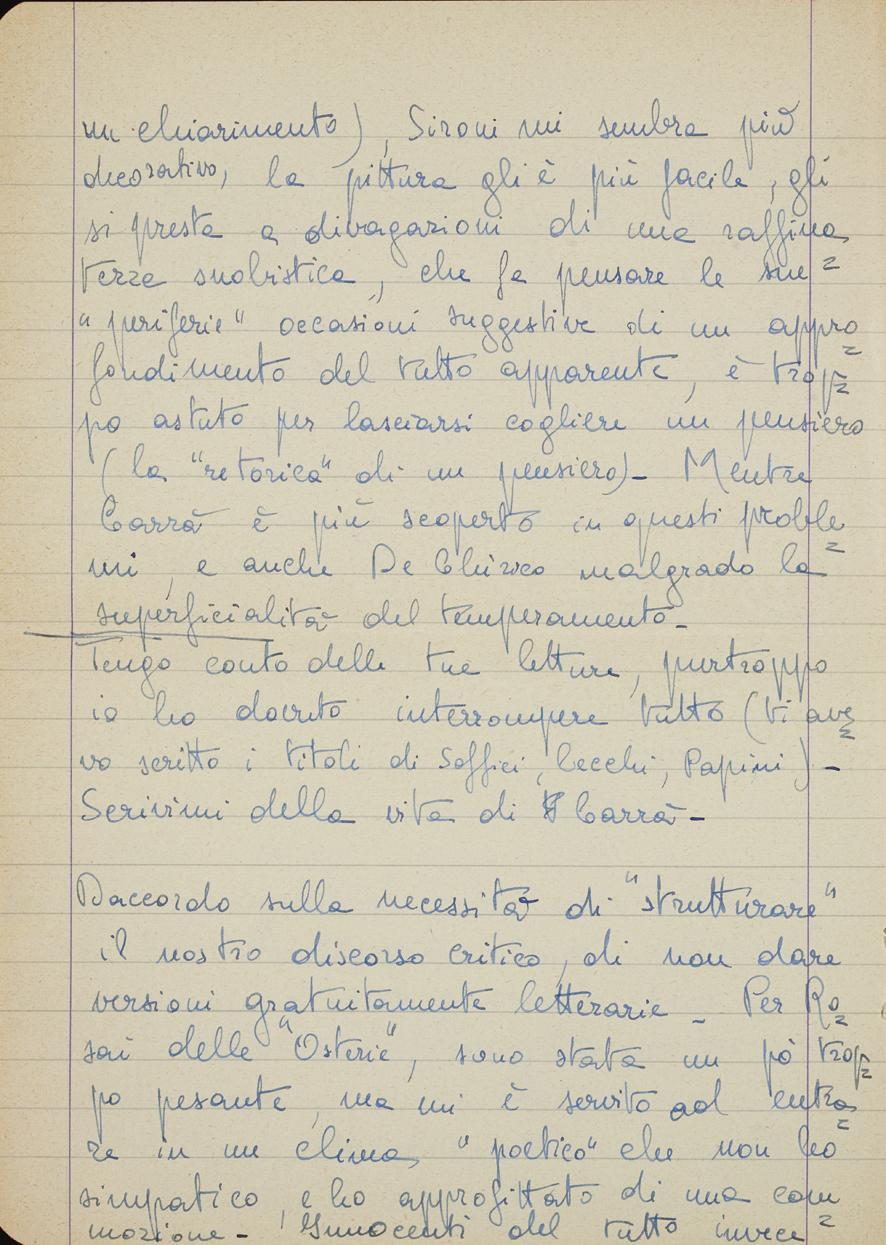 un chiarimento), Sironi mi sembra più
decorativo, la pittura gli è più facile, gli
si presta a divagazioni di una raffina=
tezza snobistica, che fa pensare le sue
"periferie" occasioni suggestive di un appro=
fondimento del tutto apparente, è trop=
po astuto per lasciarsi cogliere un pensiero
(la "retorica" di un pensiero)- Mentre
Carrà è più scoperto in questi proble=
mi, e anche De Chirico malgrado la
superficialità del temperamento-
Tengo conto delle tue letture, purtroppo
io ho dovuto interrompere tutto (ti ave=
vo scritto i titoli di Soffici, Cecchi, Papini)-
Scrivimi della vita di Carrà-
Daccordo sulla necessità di "strutturare"
il nostro discorso critico, di non dare
versioni gratuitamente letterarie - Per Ro=
sai delle "Osterie", sono stata un pò trop=
po pesante, ma mi è servito ad entra=
re in un clima "poetico" che non ho
simpatico, e ho approfittato di una com=
mozione- Innocenti del tutto invece